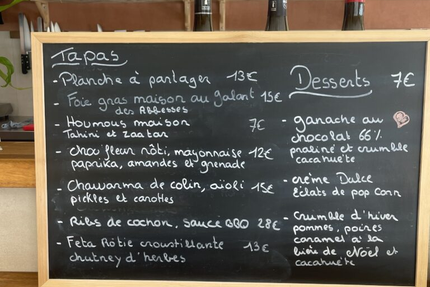 Tapas
- Planche à partager 13€
- Foie gras maison au galant 15€
des Abbesses
- Houmous maison 7€
Tahini et zaatar
- chou fleur rôti, mayonnaise 12€
paprika, amandes et grenade
- Chawarma de colin, aïoli 15€
pickles et carottes
- Ribs de cochon, sauce BBQ 28€
- Feta Rôtie croustillante 13€
chutney d'herbes
Desserts 7€
- ganache au
chocolat 66%
praliné et crumble
cacahuète
- crème Dulce
éclats de pop corn
- Crumble d'hiver
pommes, poires
caramel à la
bière de Noël et
cacahuète